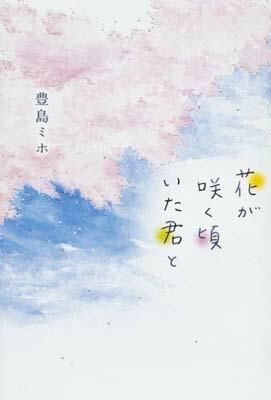 花が
咲く頃
いた君と
豊島ミホ